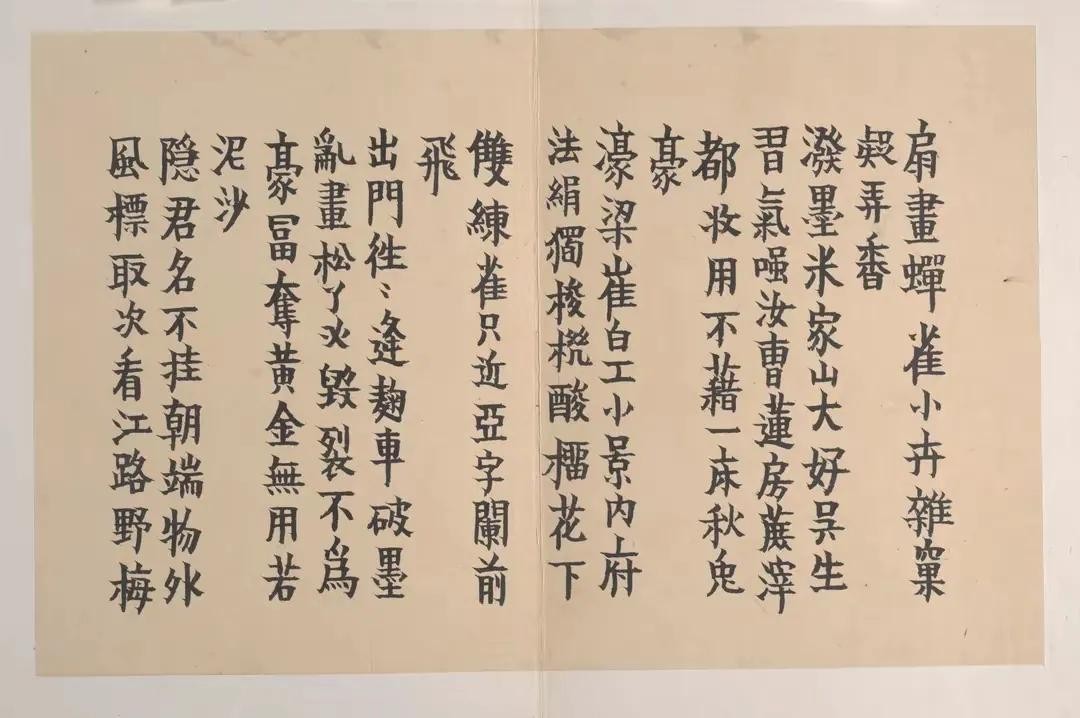 扇畫蟬雀小卉雜窠
弄香
潑墨米家山大好吳生
習氣嗤汝曹蓮房蔗滓
都收用不藉一床秋兔
豪
濠梁崔白工小景內府
法絹獨梭酸榴花下
雙練雀只近亞字闌前
飛
出門往〻逢麴車破墨
亂畫松了火毀裂不爲
豪冨奪黃金無用若
泥沙
隱君名不挂朝端物外
風標取次看江路野梅